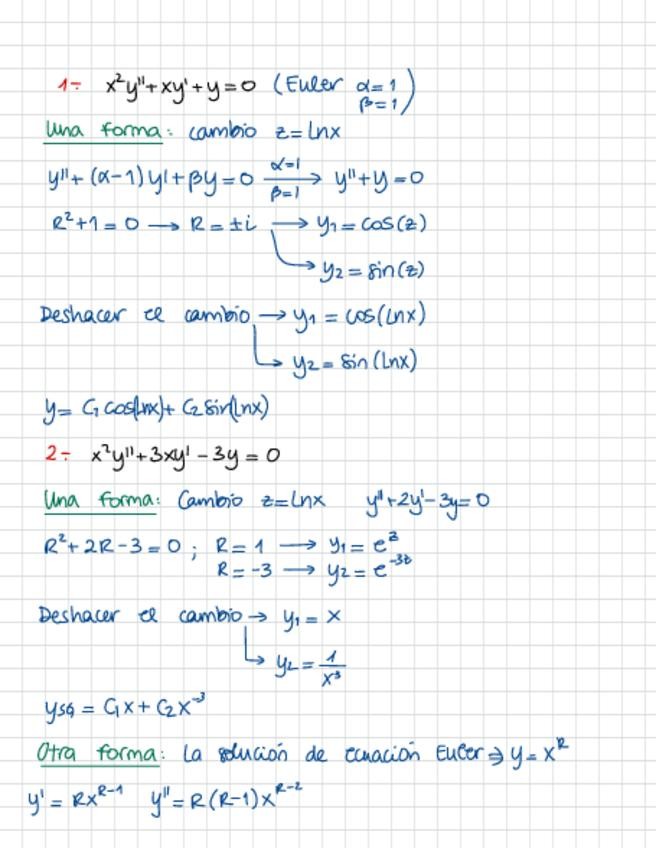 1- x²y''+xy'+y=0 (Euler α=1 β=1)
Una forma: cambio z=lnx
y''+(α-1)y'+βy=0 —α=1 β=1→ y''+y=0
R²+1=0 → R=±i → y₁=cos(z)
↳ y₂=sin(z)
Deshacer el cambio → y₁=cos(lnx)
↳ y₂=sin(lnx)
y= C₁cos(lnx)+C₂sin(lnx)
2- x²y''+3xy'-3y=0
Una forma: Cambio z=lnx y''+2y'-3y=0
R²+2R-3=0 ; R=1 → y₁=e^z
R=-3 → y₂=e^-3z
Deshacer el cambio → y₁=x
↳ y₂=1/x³
ysg = C₁x+C₂x^-3
Otra forma: La solución de ecuación Euler ⇒ y=x^R
y'=Rx^R-1 y''=R(R-1)x^R-2